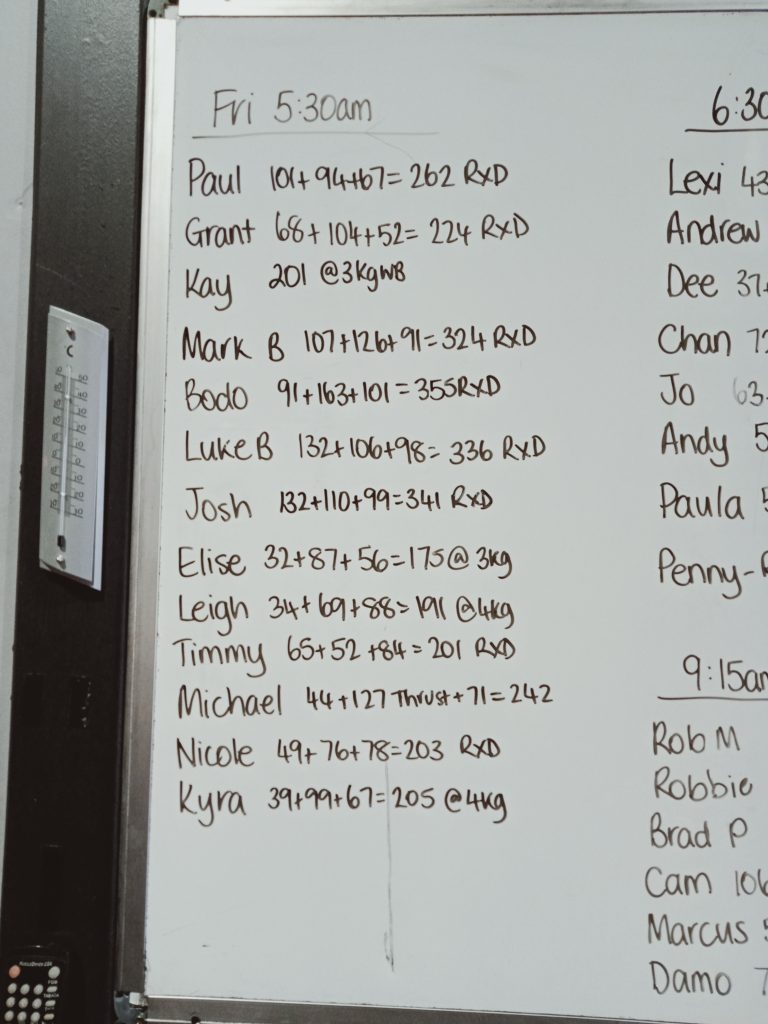 Fri 5:30am
Paul 101+94+67= 262 RxD
Grant 68+104+52= 224 RxD
Kay 201 @3kgWB
Mark B 107+126+91=324 RxD
Bodo 91+163+101=355RxD
Luke B 132+106+98= 336 RxD
Josh 132+110+99=341 RxD
Elise 32+87+56=175@ 3kg
Leigh 34+69+88= 191 @4kg
Timmy 65+52+84=201 RxD
Michael 44+127 Thrust+71=242
Nicole 49+76+78=203 RxD
Kyra 39+99+67=205 @4kg
6:30
Lexi 43
Andrew
Dee 37+
Chan 72
Jo 63
Andy 5
Paula 5
Penny-R
9:15am
Rob M
Robbie
Brad P
Cam 106
Marcus 5
Damo 7
C